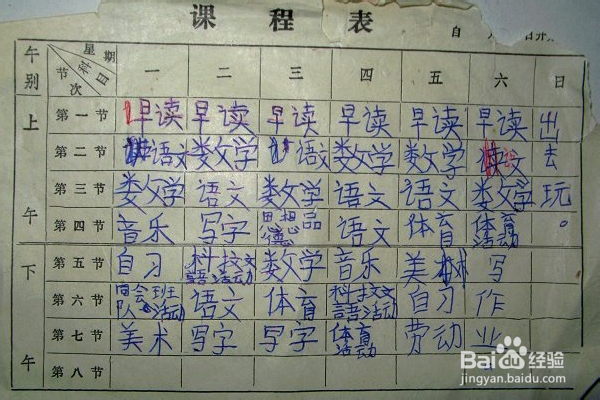 课程表
自 月 日开
午别 星期 科目 节次 一 二 三 四 五 六 日
上午 第一节 早读 早读 早读 早读 早读 早读 出
第二节 语文 数学 语文 数学 数学 语文 去
第三节 数学 语文 数学 语文 语文 数学 玩
第四节 音乐 写字 思想品德 语文 体育 体育活动 。
下午 第五节 自习 科技文语活动 数学 音乐 美术 写
第六节 周会班队活动 语文 体育 科技文语活动 自习 作
第七节 美术 写字 写字 体育活动 劳动 业
第八节
Baidu经验
jingyan.baidu.com